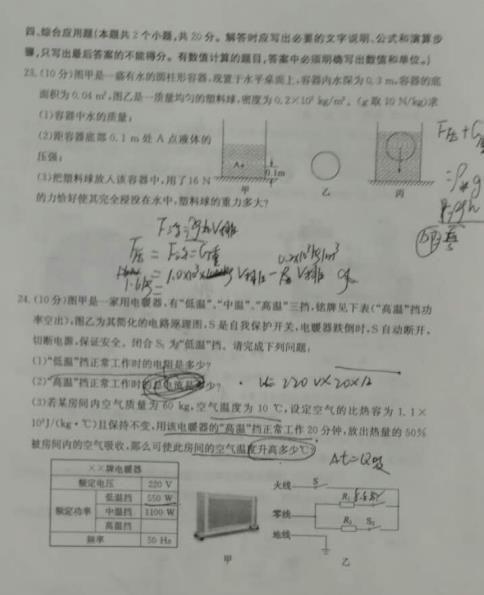 四、综合应用题(本题共2个小题,共20分。解答时应写出必要的文字说明、公式和演算步
骤,只写出最后答案的不能得分。有数值计算的题目,答案中必须明确写出数值和单位。)
23.(10分)图甲是一盛有水的圆柱形容器,现置于水平桌面上,容器内水深为0.3 m,容器的底
面积为0.04 m²,图乙是一质量均匀的塑料球,密度为0.2×10³ kg/m³。(g取10 N/kg)求
(1)容器中水的质量;
(2)距容器底部0.1 m处A点液体的
压强;
(3)把塑料球放入该容器中,用了16 N
的力恰好使其完全浸没在水中,塑料球的重力多大?
A
0.1m
甲
乙
丙
F浮=ρgV排
F压=F浮-G重
24.(10分)图甲是一家用电暖器,有“低温”、“中温”、“高温”三挡,铭牌见下表(“高温”挡功
率空出),图乙为其简化的电路原理图,S是自我保护开关,电暖器跌倒时,S自动断开,
切断电源,保证安全。闭合S₁为“低温”挡。请完成下列问题:
(1)“低温”挡正常工作时的电阻是多少?
(2)“高温”挡正常工作时的总电流是多少?
(3)若某房间内空气质量为60 kg,空气温度为10 ℃,设定空气的比热容为1.1×
10³J/(kg·℃)且保持不变,用该电暖器的“高温”挡正常工作20分钟,放出热量的50%
被房间内的空气吸收,那么可使此房间的空气温度升高多少℃?
Δt=Q吸
××牌电暖器
额定电压 220 V
额定功率 低温挡 550 W
中温挡 1100 W
高温挡
频率 50 Hz
甲
火线 S
零线 R₁
R₂ S₂
地线
乙